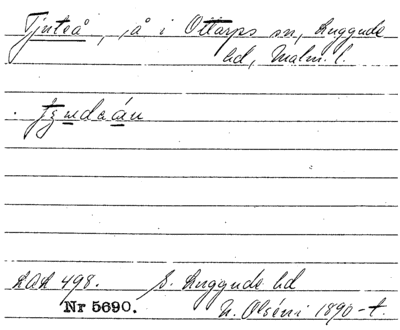 Tjuteå, å i Ottarps sn, Luggude
hd, Malm. l.
LAL 498. S. Luggude hd
Nr 5690. N. Olséni 1890-t.